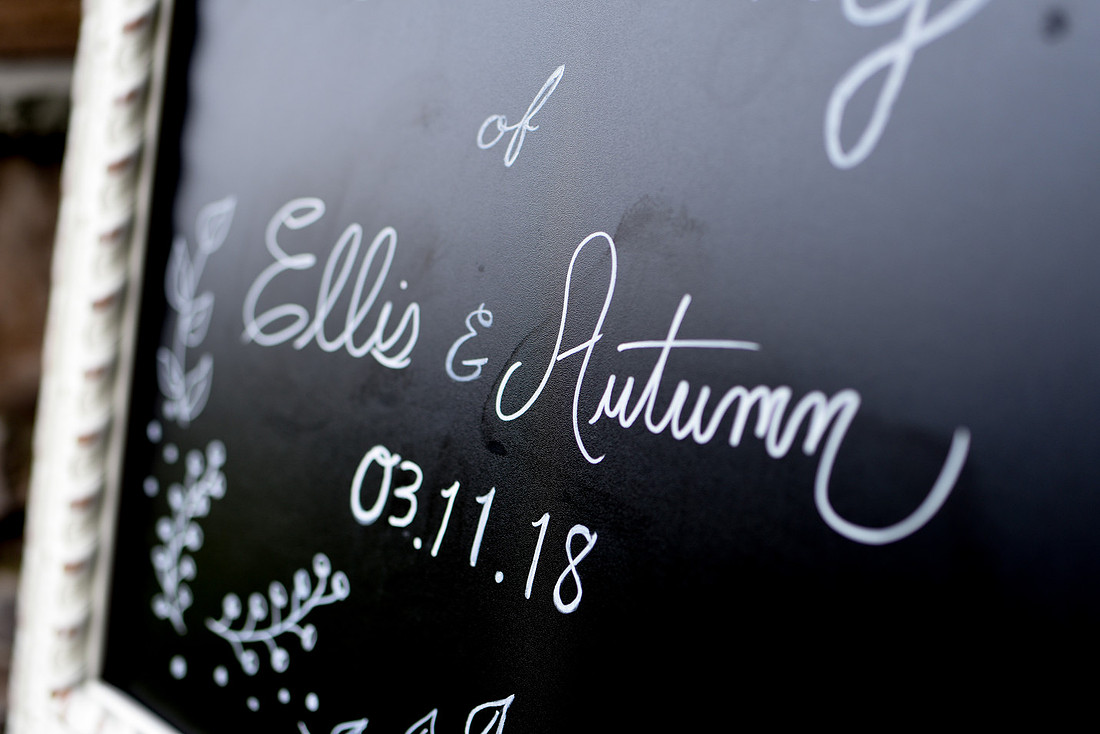 of
Ellis & Autumn
03.11.18